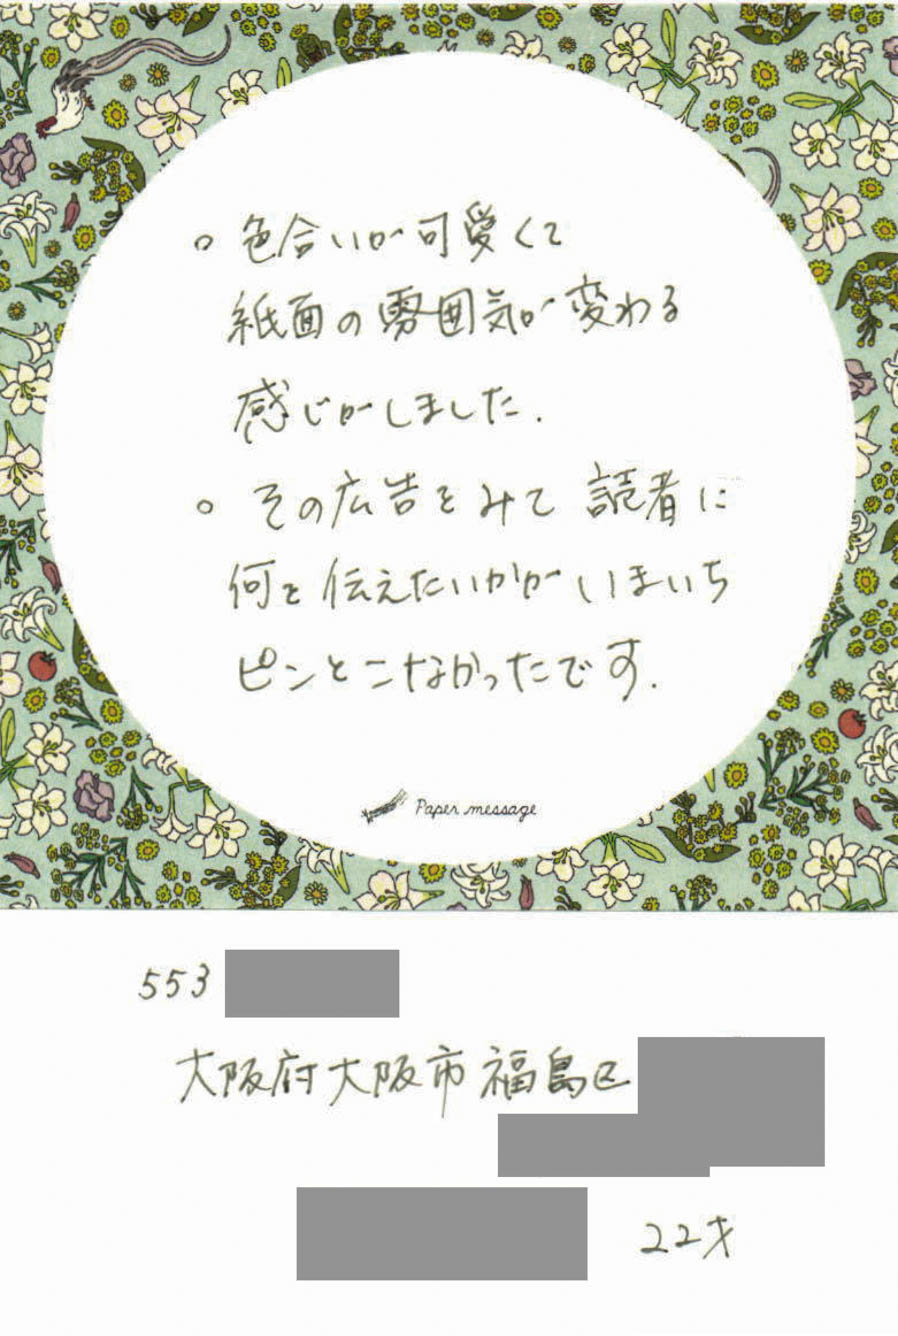 ○ 色合いが可愛くて
紙面の雰囲気が変わる
感じがしました.
○ その広告をみて 読者に
何を伝えたいかが いまいち
ピンとこなかったです.
Paper message
553
大阪府大阪市福島区
22才